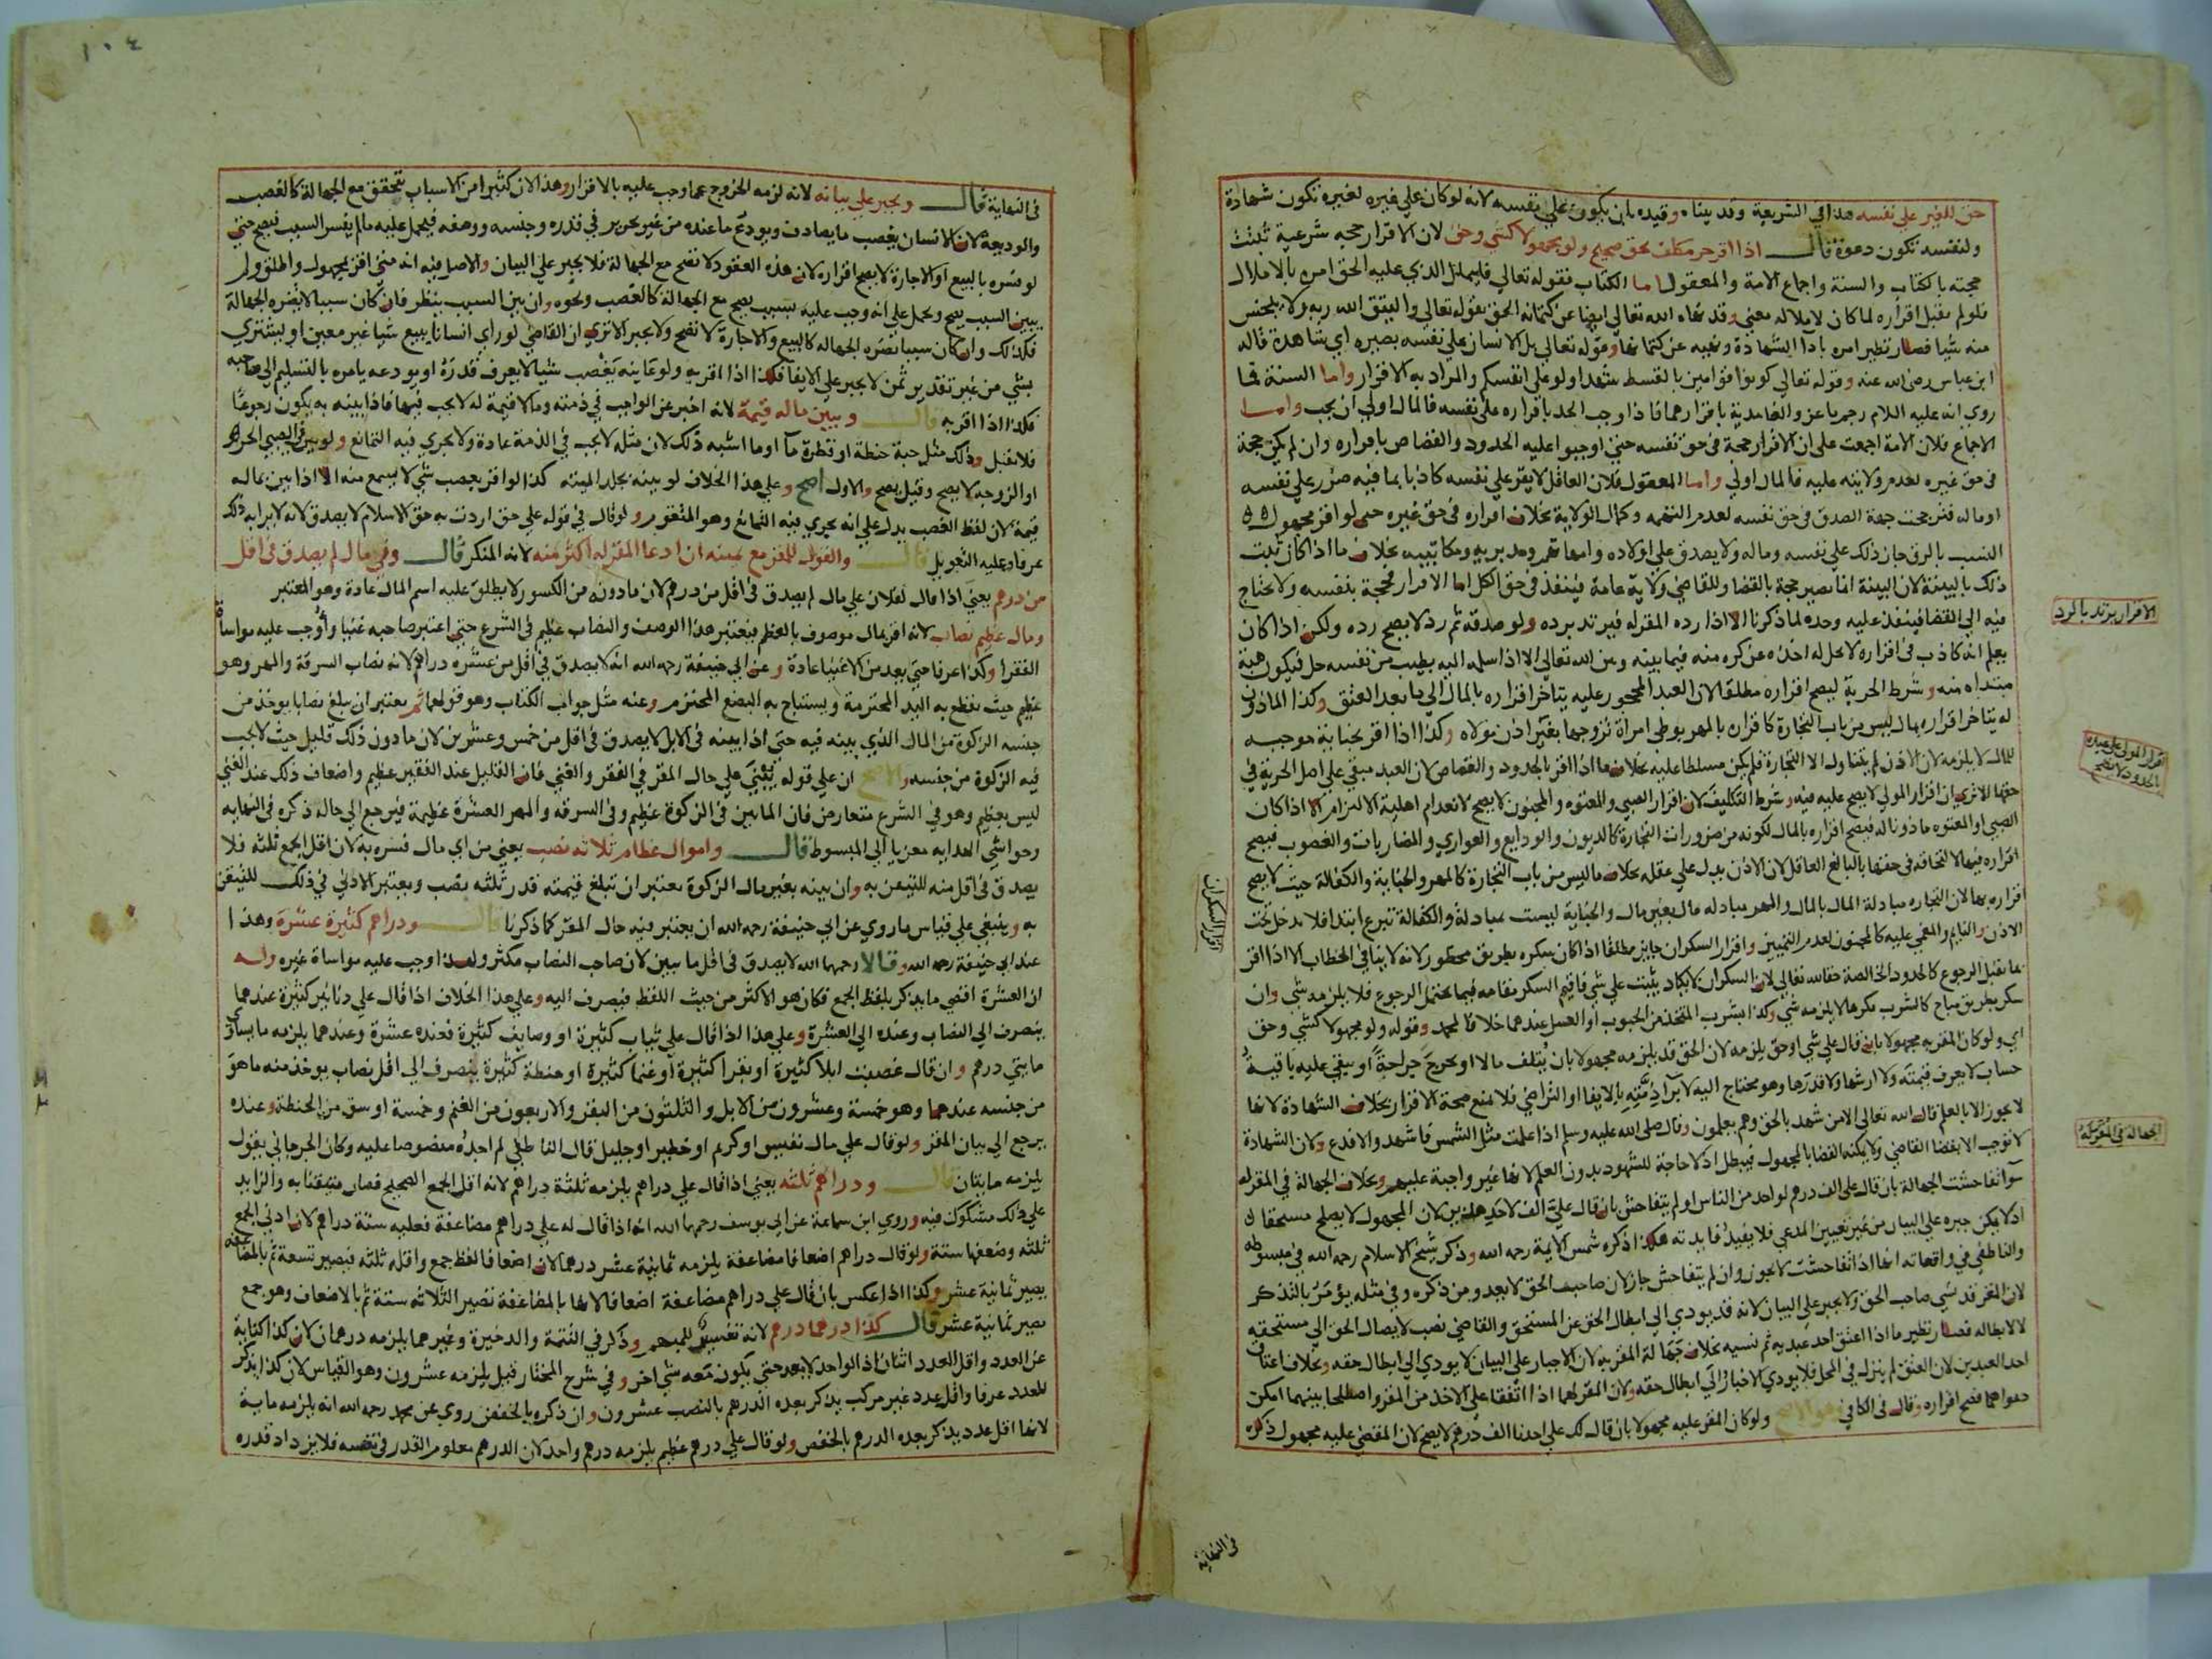 حق للغير على نفسه هذا في الشريعة وقد بيناه وقيده بان يكون على نفسه لانه لو كان على غيره لغيره تكون شهادة
ولنفسه تكون دعوة قال اذا اقر حر مكلف بحق صحيح ولو مجهولا كشي وحق لان الاقرار حجة شرعية ثبتت
حجته بالكتاب والسنة واجماع الامة والمعقول اما الكتاب فقوله تعالي فليملل الذي عليه الحق امره بالاملال
فلو لم يقبل اقراره لما كان لاملاله معني وقد نهاه الله تعالي ايضا عن كتمانه الحق بقوله تعالي وليتق الله ربه ولا يبخس
منه شيا فصار نظير امره بادا الشهادة ونهيه عن كتمانها وقوله تعالي بل الانسان علي نفسه بصيره اي شاهدة قاله
ابن عباس رضي الله عنه وقوله تعالي كونوا قوامين بالقسط شهدا ولو علي انفسكم والمراد به الاقرار واما السنة فما
روي انه عليه السلام رجم ماعز والغامدية باقرارهما فاذا وجب الحد باقراره علي نفسه فالمال اولي ان يجب واما
الاجماع فلان الامة اجمعت علي ان الاقرار حجة في حق نفسه حتي اوجبوا عليه الحدود والقصاص باقراره وان لم يكن حجة
في حق غيره لعدم ولايته عليه فالمال اولي واما المعقول فلان العاقل لا يقر علي نفسه كاذبا بما فيه ضرر علي نفسه
او ماله فترجحت جهة الصدق في حق نفسه لعدم التهمه وكمال الولاية بخلاف اقراره في حق غيره حتي لو اقر مجهول
النسب بالرق جاز ذلك علي نفسه وماله ولا يصدق علي اولاده وامهاتهم ومدبريه ومكاتبيه بخلاف ما اذا كان ثبت
ذلك بالبينة لان البينة انما تصير حجة بالقضا وللقاضي ولاية عامة فينفذ في حق الكل اما الاقرار فحجة بنفسه ولا يحتاج
فيه الي القضا فينفذ عليه وحده لما ذكرنا الا اذا رده المقر له فيرتد برده ولو صدقه ثم رد لا يصح رده ولكن اذا كان
يعلم انه كاذب في اقراره لا يحل له اخذه عن كره منه فيما بينه وبين الله تعالي الا اذا سلمه اليه بطيب من نفسه حل فيكون هبة
مبتداه منه وشرط الحرية ليصح اقراره مطلقا لان العبد المحجور عليه يتاخر اقراره بالمال الي ما بعد العتق وكذا الماذون
له يتاخر اقراره بما ليس من باب التجارة كاقراره بالمهر بوطي امراة تزوجها بغير اذن مولاه وكذا اذا اقر بجناية موجبه
للمال لا يلزمه لان الاذن لم يتناول الا التجارة فلم يكن مسلطا عليه بخلاف ما اذا اقر بالحدود والقصاص لان العبد مبقي علي اصل الحرية في
حقها الا تري ان اقرار المولي لا يصح عليه فيه وشرط التكليف لان اقرار الصبي والمعتوه والمجنون لا يصح لانعدام اهلية الالتزام الا اذا كان
الصبي او المعتوه ماذونا له فيصح اقراره بالمال لكونه من ضرورات التجارة كالديون والودايع والعواري والمضاربات والغصوب فيصح
اقراره فيها لالتحاقه في حقها بالبالغ العاقل لان الاذن يدل علي عقله بخلاف ما ليس من باب التجارة كالمهر والجناية والكفالة حيث لا يصح
اقراره بها لان التجاره مبادلة المال بالمال والمهر مبادله مال بغير مال والجناية ليست بمبادلة والكفالة تبرع ابتدا فلا تدخل تحت
الاذن والنايم والمغمي عليه كالمجنون لعدم التمييز واقرار السكران جايز مطلقا اذا كان سكره بطريق محظور لانه لا ينافي الخطاب الا اذا اقر
بما يقبل الرجوع كالحدود الخالصة حقا لله تعالي لان السكران لا يكاد يثبت علي شي فاقيم السكر مقامه فيما يحتمل الرجوع فلا يلزمه شي وان
سكر بطريق مباح كالشرب مكرها لا يلزمه شي وكذا بشرب المتخذ من الحبوب او العسل عندهما خلافا لمحمد وقوله ولو مجهولا كشي وحق
اي ولو كان المقر به مجهولا بان قال علي شي او حق يلزمه لان الحق قد يلزمه مجهولا بان يتلف مالا او يجرح جراحة او يبقي عليه باقية
حساب لا يعرف قيمته ولا ارشها ولا قدرها وهو محتاج اليه لابراء ذمته بالايفا او التراضي فلا تمنع صحة الاقرار بخلاف الشهادة لانها
لا يجوز الا بالعلم قال الله تعالي الا من شهد بالحق وهم يعلمون وقال صلي الله عليه وسلم اذا علمت مثل الشمس فاشهد والا فدع ولان الشهادة
لا توجب الا بقضا القاضي ولا يمكنه القضا بالمجهول فيبطل اذ لا حاجة للشهود بدون العلم لانها غير واجبة عليهم وبخلاف الجهالة في المقر له
سوا تفاحشت الجهالة بان قال علي الف درهم لواحد من الناس او لم يتفاحش بان قال علي الف لاحد هذين لان المجهول لا يصلح مستحقا
اذ لا يمكن جبره علي البيان من غير تعيين المدعي فلا يفيد فايدته هكذا ذكره شمس الايمة رحمه الله وذكر شيخ الاسلام رحمه الله في مبسوطه
والناطفي في واقعاته انها اذا تفاحشت لا يجوز وان لم يتفاحش جاز لان صاحب الحق لا يعدو من ذكره وفي مثله يؤمر بالتذكر
لان المقر قد نسي صاحب الحق ولا يجبر علي البيان لانه قد يودي الي ابطال الحق عن المستحق والقاضي نصب لايصال الحق الي مستحقه
لا لابطاله فصار نظير ما اذا اعتق احد عبديه ثم نسيه بخلاف جهالة المقر به لان الاجبار علي البيان لا يودي الي ابطال حقه وبخلاف اعتاق
احد العبدين لان العتق لم ينزل في المحل فلا يودي الاخبار الي ابطال حقه ولان المقر لهما اذا اتفقا علي الاخذ من المقر واصطلحا بينهما امكن
دعواهما فصح اقراره وقال في الكافي هو الاصح ولو كان المقر عليه مجهولا بان قال لك علي احدنا الف درهم لا يصح لان المقضي عليه مجهول ذكره
الاقرار يرتد بالرد
اقرار المولي علي عبده بالحدود لا يصح
اقرار السكران
الجهالة في المقر له
في النهاية
١٠٤
في النهاية قال ويجبر علي بيانه لانه لزمه الخروج عما وجب عليه بالاقرار وهذا لان كثيرا من الاسباب تتحقق مع الجهالة كالغصب
والوديعة لان الانسان يغصب ما يصادف ويودع ما عنده من غير تحرير في قدره وجنسه ووصفه فيحمل عليه ما لم يفسر السبب فيصح حتي
لو فسره بالبيع او الاجارة لا يصح اقراره لان هذه العقود لا تصح مع الجهالة فلا يجبر علي البيان والاصل فيه انه متي اقر بمجهول واطلق ولم
يبين السبب يصح ويحمل علي انه وجب عليه بسبب يصح مع الجهالة كالغصب ونحوه وان بين السبب ينظر فان كان سببا لا تضره الجهالة
فكذلك وان كان سببا تضره الجهاله كالبيع والاجارة لا تصح ولا يجبر الا تري ان القاضي لو راي انسانا يبيع شيا غير معين او يشتري
بشي من غير تقدير ثمن لا يجبر علي الايفا فكذا اذا اقر به ولو عاينه يغصب شيا لا يعرف قدره او يودعه يامره بالتسليم الي صاحبه
فكذا اذا اقر به قال ويبين ما له قيمة لانه اخبر عن الواجب في ذمته وما لا قيمة له لا يجب فيها فاذا بينه به يكون رجوعا
فلا يقبل وذلك مثل حبة حنطة او قطرة مآ او ما اشبه ذلك لان مثله لا يجب في الذمة عادة ولا يجري فيه التمانع ولو بين في الصبي الحر
او الزوجه لا يصح وقيل يصح والاول اصح وعلي هذا الخلاف لو بينه بجلد الميته كذا لو اقر بغصب شي لا يسمع منه الا اذا بين بماله
قيمة لان لفظ الغصب يدل علي انه يجري فيه التمانع وهو المتقوم ولو قال في قوله علي حق اردت به حق الاسلام لا يصدق لانه لا يراد به ذلك
عرفا وعليه التعويل قال والقول للمقر مع يمينه ان ادعا المقر له اكثر منه لانه المنكر قال وفي مال لم يصدق في اقل
من درهم يعني اذا قال لفلان علي مال لم يصدق في اقل من درهم لان ما دونه من الكسور لا يطلق عليه اسم المال عادة وهو المعتبر
ومال عظيم نصاب لانه اقر بمال موصوف بالعظم فيعتبر هذا الوصف والنصاب عظيم في الشرع حتي اعتبر صاحبه غنيا واوجب عليه مواساة
الفقرا وكذا عرفا حتي يعد من الاغنيا عادة وعن ابي حنيفة رحمه الله انه لا يصدق في اقل من عشره دراهم لانه نصاب السرقة والمهر وهو
عظيم حيث تقطع به اليد المحترمة ويستباح به البضع المحترم وعنه مثل جواب الكتاب وهو قولهما ثم يعتبر ان يبلغ نصابا يوخذ من
جنسه الزكوة من المال الذي بينه فيه حتي اذا بينه في الابل لا يصدق في اقل من خمس وعشرين لان ما دون ذلك قليل حيث لا يجب
فيه الزكوة من جنسه والاصح ان علي قوله يبني علي حال المقر في الفقر والغني فان القليل عند الفقير عظيم واضعاف ذلك عند الغني
ليس بعظيم وهو في الشرع متعارض فان المايتين في الزكوة عظيم وفي السرقه والمهر العشرة عظيمة فيرجع الي حاله ذكره في النهايه
وحواشي الهدايه معزيا الي المبسوط قال واموال عظام ثلاثه نصب يعني من اي مال فسره به لان اقل الجمع ثلثه فلا
يصدق في اقل منه للتيقن به وان بينه بغير مال الزكوة يعتبر ان تبلغ قيمته قدر ثلثه نصب ويعتبر الادني في ذلك للتيقن
به وينبغي علي قياس ما روي عن ابي حنيفة رحمه الله ان يعتبر فيه حال المقر كما ذكرنا قال ودراهم كثيرة عشرة وهذا
عند ابي حنيفة رحمه الله وقالا رحمهما الله لا يصدق في اقل ما يتين لان صاحب النصاب مكثر ولهذا وجب عليه مواساة غيره وله
ان العشرة اقصي ما يذكر بلفظ الجمع فكان هو الاكثر من حيث اللفظ فيصرف اليه وعلي هذا الخلاف اذا قال علي دنانير كثيرة عندهما
ينصرف الي النصاب وعنده الي العشرة وعلي هذا اذا قال علي ثياب كثيرة او وصايف كثيرة فعنده عشرة وعندهما يلزمه ما يساوي
مايتي درهم وان قال غصبت ابلا كثيرة او بقرا كثيرة او غنما كثيرة او حنطة كثيرة ينصرف الي اقل نصاب يوخذ منه ما هو
من جنسه عندهما وهو خمسة وعشرون من الابل والثلثون من البقر والاربعون من الغنم وخمسة اوسق من الحنطة وعنده
يرجع الي بيان المقر ولو قال علي مال نفيس او كريم او خطير او جليل قال الناطفي لم اجده منصوصا عليه وكان الجرجاني يقول
يلزمه مايتان قال ودراهم ثلثه يعني اذا قال علي دراهم يلزمه ثلثة دراهم لانه اقل الجمع الصحيح فصار متيقنا به والزايد
علي ذلك مشكوك فيه وروي ابن سماعة عن ابي يوسف رحمهما الله انه اذا قال له علي دراهم مضاعفة فعليه ستة دراهم لان ادني الجمع
ثلثه وضعفها ستة ولو قال دراهم اضعافا مضاعفة يلزمه ثمانية عشر درهما لان اضعافا لفظ جمع واقله ثلثه فيصير تسعة ثم بالمضاعفه
يصير ثمانية عشر وكذا اذا عكس بان قال علي دراهم مضاعفة اضعافا لانها بالمضاعفة تصير الثلاثه ستة ثم بالاضعاف وهو جمع
تصير ثمانية عشر قال كذا درهما درهم لانه تفسير للمبهم وذكر في التتمة والذخيرة وغيرهما يلزمه درهمان لان كذا كناية
عن العدد واقل العدد اثنان اذ الواحد لا يعد حتي يكون معه شي اخر وفي شرح المختار قيل يلزمه عشرون وهو القياس لان كذا يذكر
للعدد عرفا واقل عدد غير مركب يذكر بعده الدرهم بالنصب عشرون وان ذكره بالخفض روي عن محمد رحمه الله انه يلزمه ماية
لانها اقل عدد يذكر بعده الدرهم بالخفض ولو قال علي درهم عظيم يلزمه درهم واحد لان الدرهم معلوم القدر في نفسه فلا يزداد قدره